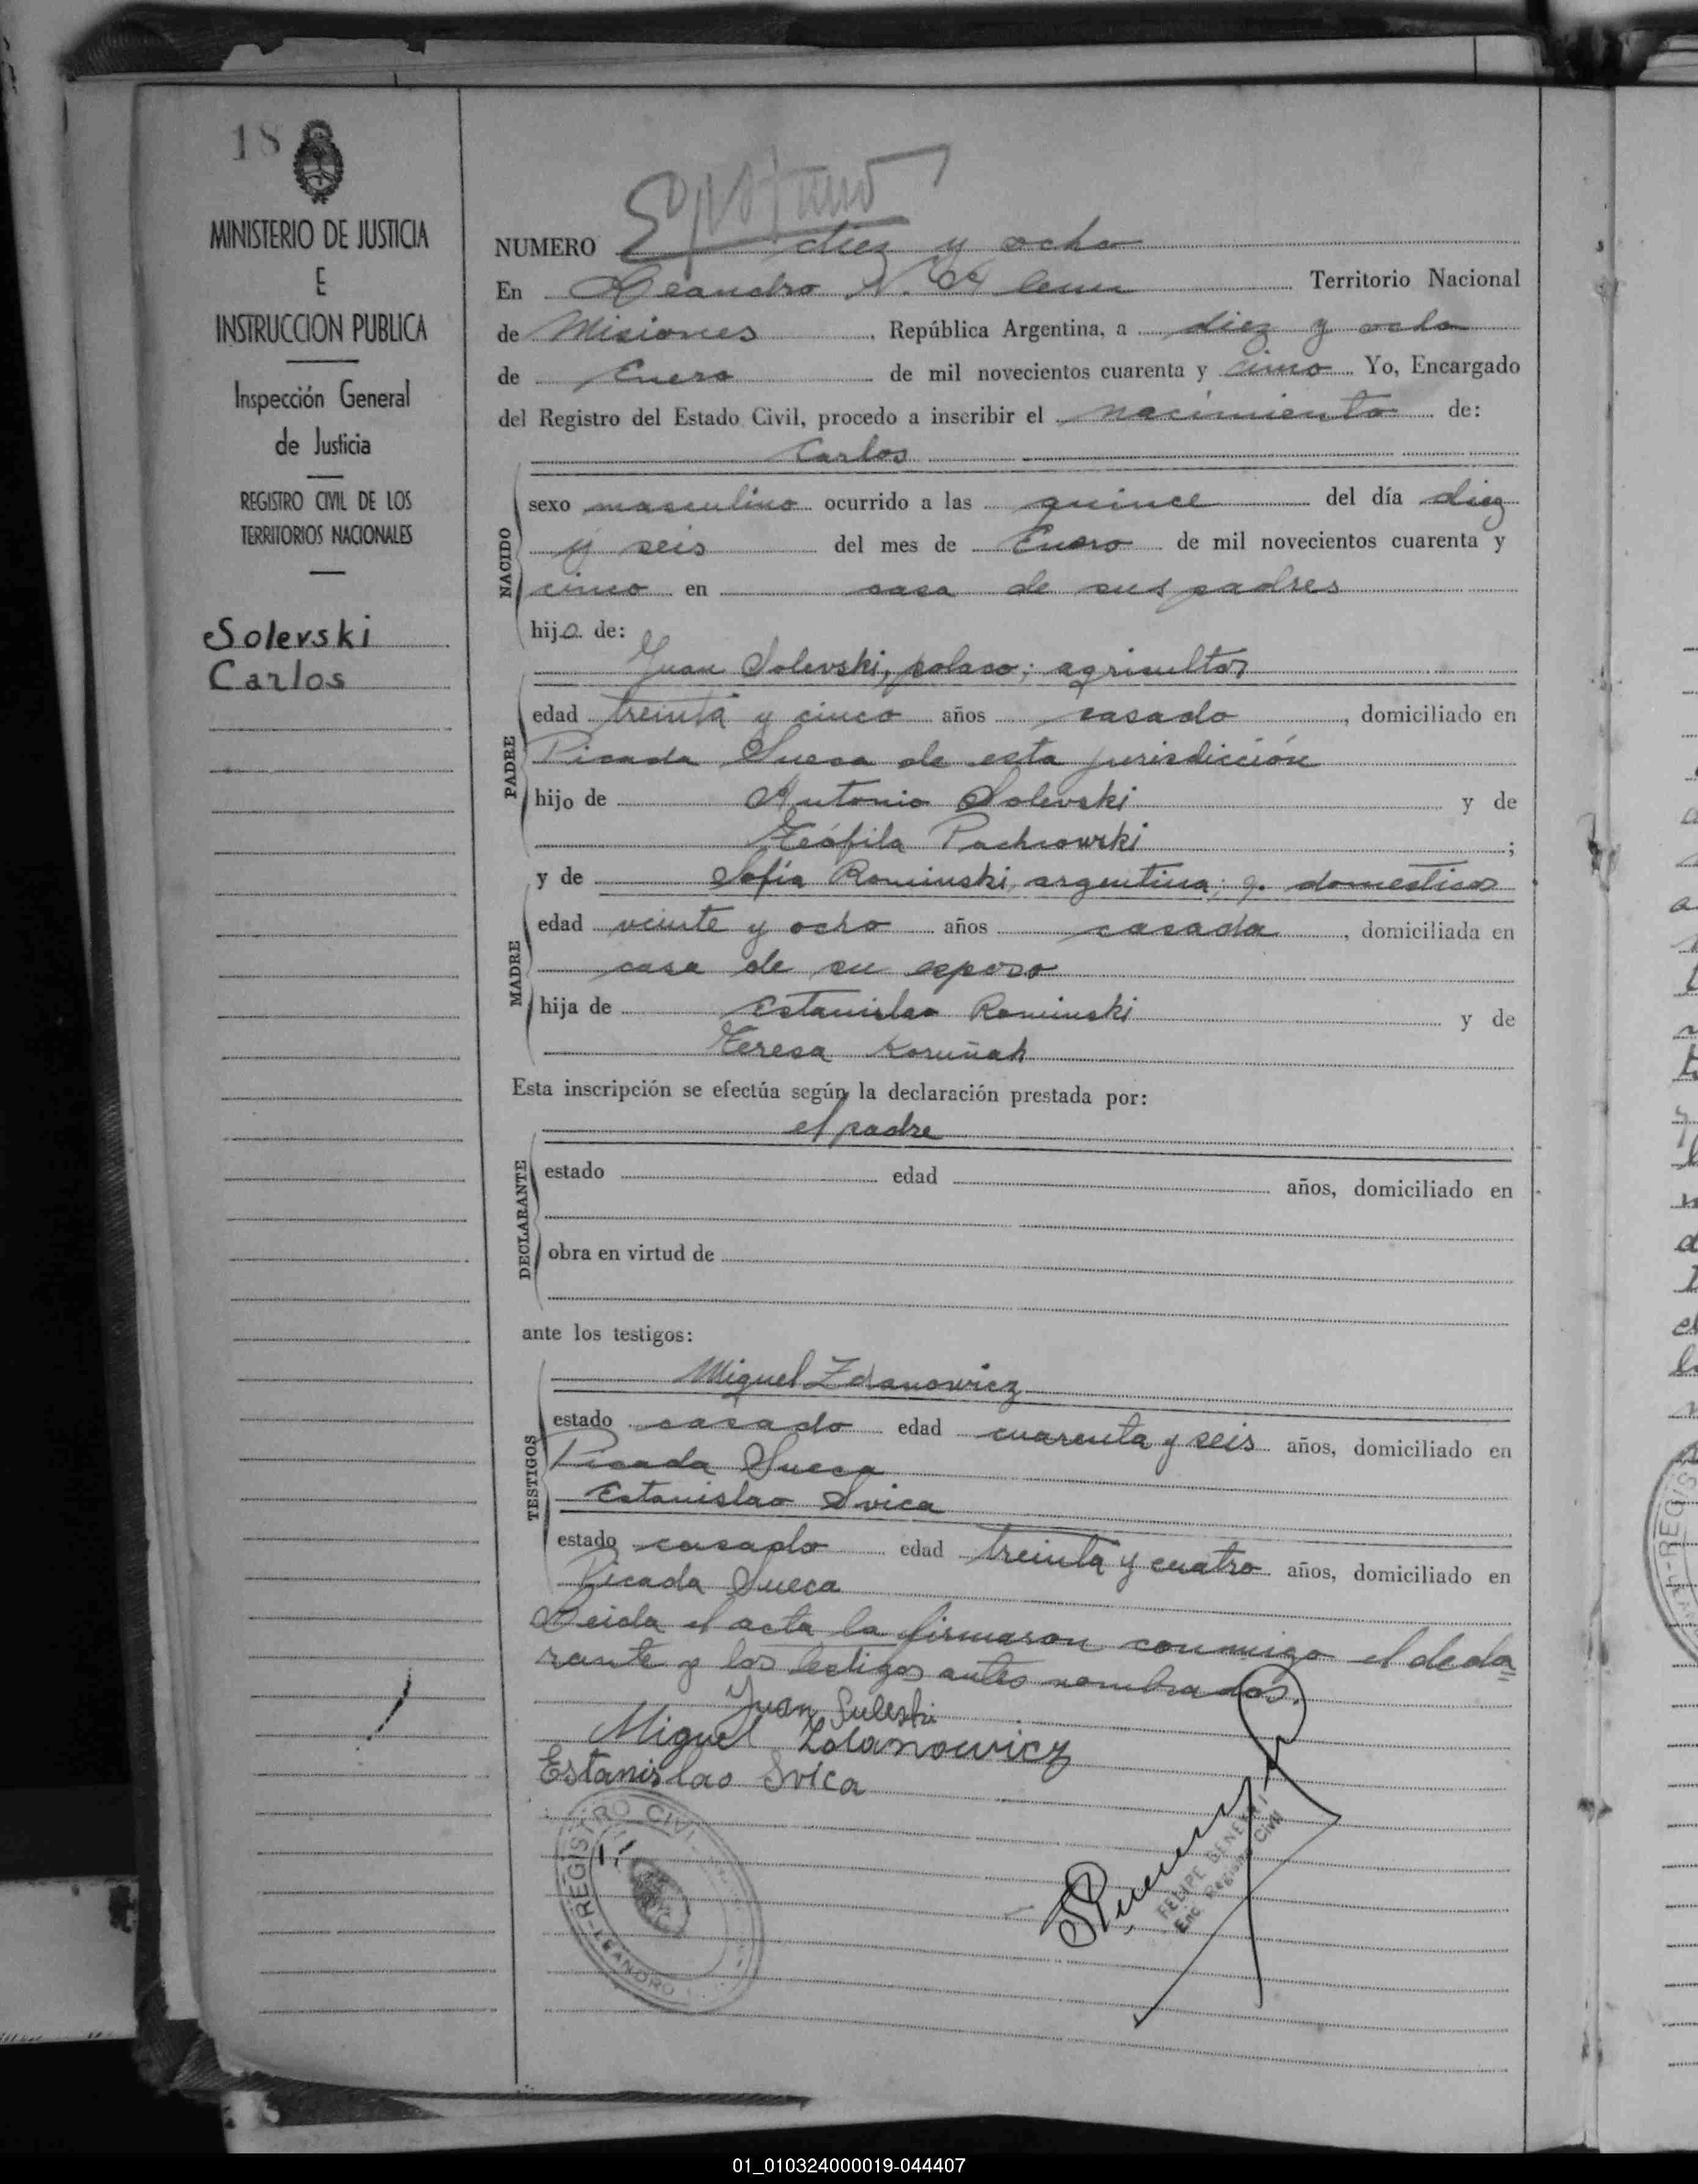 18
MINISTERIO DE JUSTICIA
E
INSTRUCCION PUBLICA
Inspección General
de Justicia
REGISTRO CIVIL DE LOS
TERRITORIOS NACIONALES
Solevski
Carlos
NUMERO diez y ocho
En Leandro N. Alem Territorio Nacional
de Misiones, República Argentina, a diez y ocho
de Enero de mil novecientos cuarenta y cinco Yo, Encargado
del Registro del Estado Civil, procedo a inscribir el nacimiento de:
Carlos
NACIDO
sexo masculino ocurrido a las quince del día diez
y seis del mes de Enero de mil novecientos cuarenta y
cinco en casa de sus padres
hijo de:
Juan Solevski, polaco; agricultor
PADRE
edad treinta y cinco años casado, domiciliado en
Picada Sueca de esta jurisdicción
hijo de Antonio Solevski y de
Teófila Pachowski;
y de Sofía Rominski, argentina; q. domesticos
MADRE
edad veinte y ocho años casada, domiciliada en
casa de su esposo
hija de Estanislao Rominski y de
Teresa Koruñak
Esta inscripción se efectúa según la declaración prestada por:
el padre
DECLARANTE
estado edad años, domiciliado en
obra en virtud de
ante los testigos:
Miguel Zdanowicz
TESTIGOS
estado casado edad cuarenta y seis años, domiciliado en
Picada Sueca
Estanislao Svica
estado casado edad treinta y cuatro años, domiciliado en
Picada Sueca
Leida el acta la firmaron conmigo el decla=
rante y los testigos antes nombrados.
Juan Suleski
Miguel Zdanowicz
Estanislao Svica
REGISTRO CIVIL
LEANDRO
FELIPE
Enc. Registro Civil
01_010324000019-044407